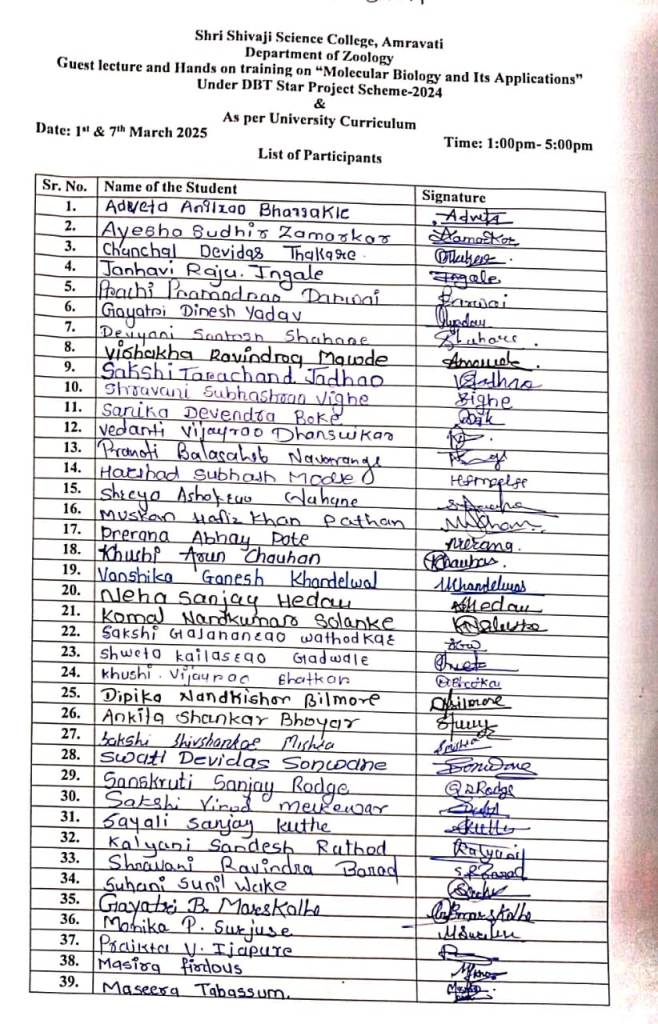 Shri Shivaji Science College, Amravati
Department of Zoology
Guest lecture and Hands on training on "Molecular Biology and Its Applications"
Under DBT Star Project Scheme-2024
&
As per University Curriculum
Date: 1st & 7th March 2025 Time: 1:00pm- 5:00pm
List of Participants
Sr. No. Name of the Student Signature
1. Adweta Anilrao Bharsakle Adwita
2. Ayesha Sudhir Zamarkar Zamarkar
3. Chanchal Devidas Thakare
4. Janhavi Raju Ingale Ingale
5. Prachi Pramodrao Darwai Darwai
6. Gayatri Dinesh Yadav
7. Devyani Santosh Shahane Shahare
8. Vishakha Ravindra Mawde
9. Sakshi Tarachand Jadhao
10. Shravani Subhashrao Vighe Vighe
11. Sanika Devendra Boke
12. Vedanti Vijayrao Dhanswikar
13. Pranoti Balasaheb Navarange
14. Harshad Subhash
15. Shreya Ashokrao Wahane
16. Muskan Hafiz Khan Pathan
17. Prerana Abhay Pote Prerana.
18. Khushi Arun Chauhan Chauhan
19. Vanshika Ganesh Khandelwal Khandelwal
20. Neha Sanjay Hedau Hedau
21. Komal Nandkumar Solanke
22. Sakshi Gajananrao Wathodkar
23. Shweta Kailasrao Gadwale
24. Khushi. Vijayrao Bhatkar
25. Dipika Nandkishor Bilmore Bilmore
26. Ankita Shankar Bhoyar
27. Sakshi Shivshankar Mishra
28. Swati Devidas Sonwane Sonwane
29. Sanskruti Sanjay Rodge Rodge
30. Sakshi Vinod
31. Sayali Sanjay Kuthe Kuthe
32. Kalyani Sandesh Rathod Kalyani
33. Shravani Ravindra Barad S.R.Barad
34. Suhani Sunil Wake
35. Gayatri B. Marskolhe Marskolhe
36. Mohika P. Surjuse
37. V. Ijapure
38. Masira firdous
39. Maseera Tabassum.